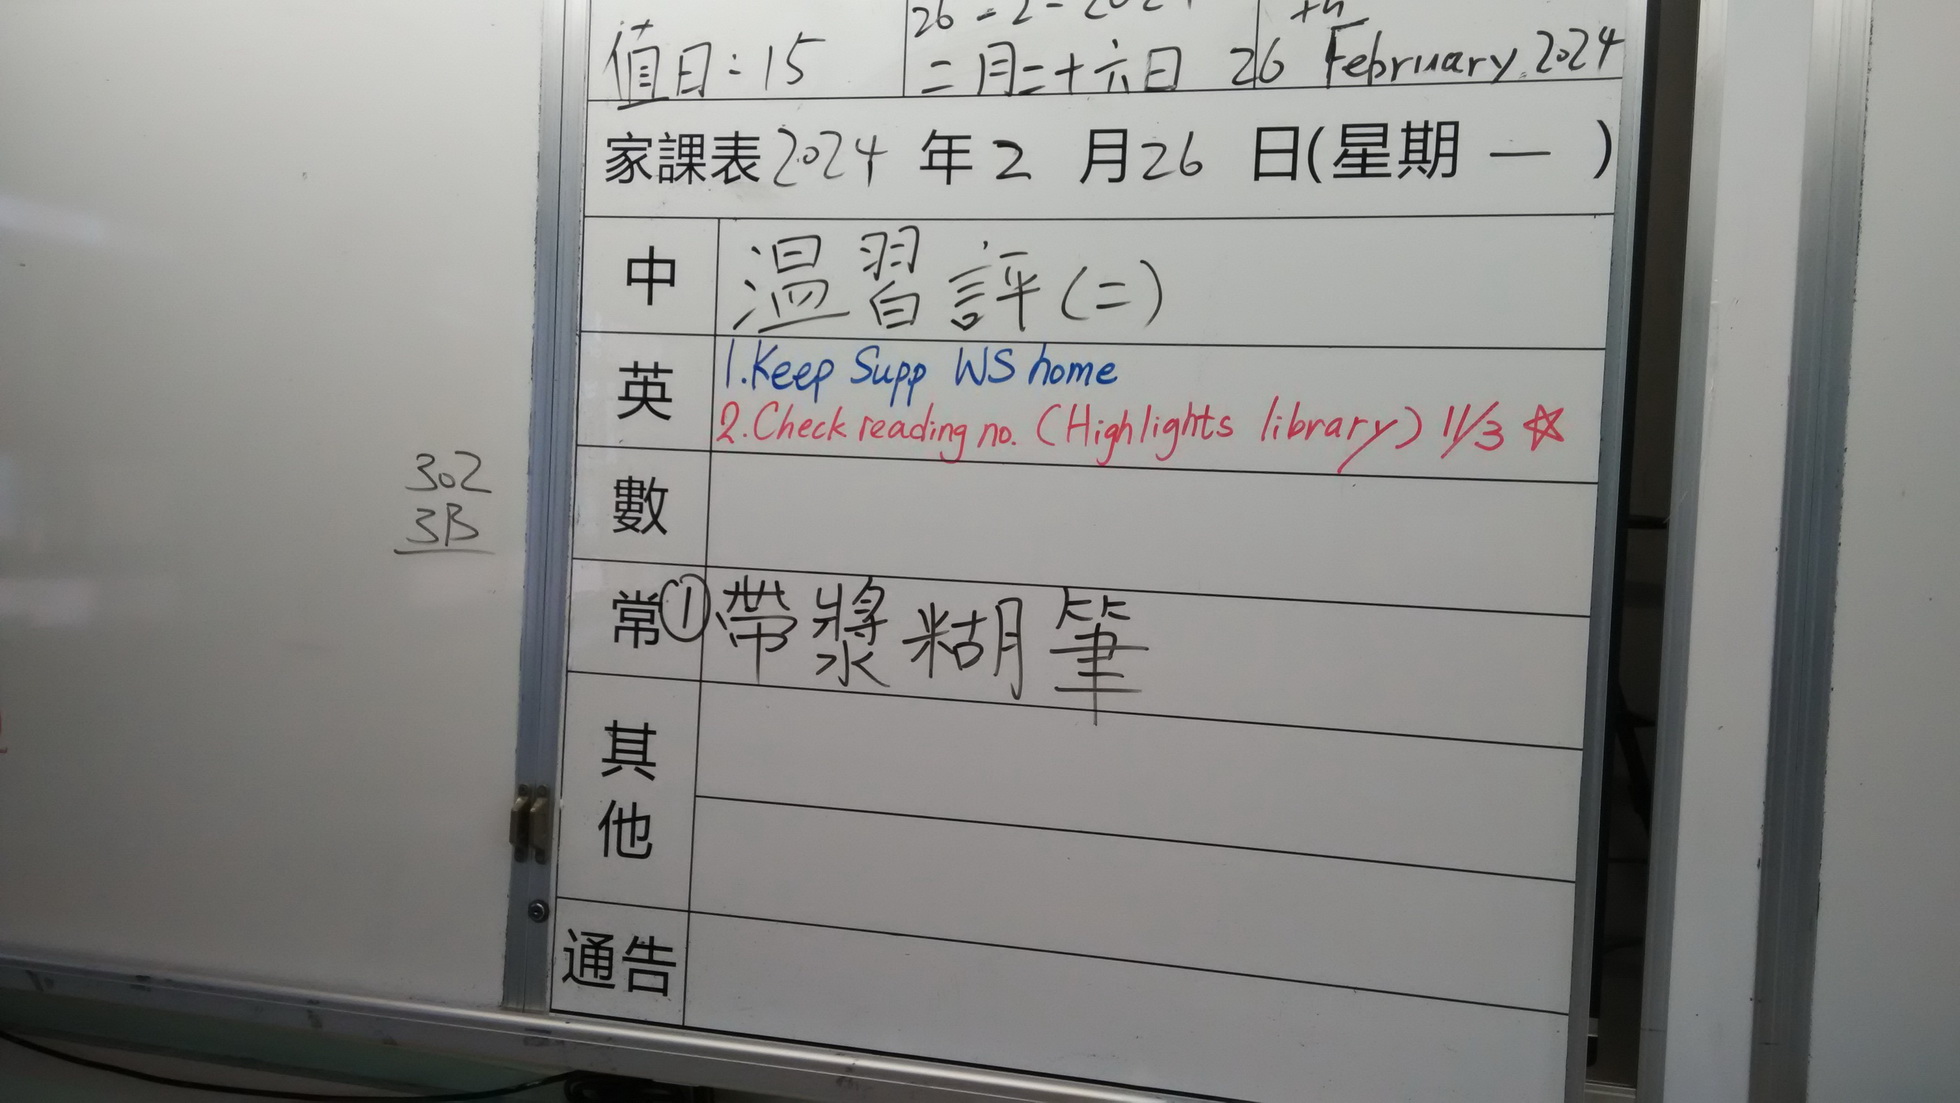 26-2-2024
th
值日:15
二月二十六日 26 February 2024
家課表2024年2月26日(星期一)
中 溫習評(二)
英 1.Keep Supp WS home
2.Check reading no. (Highlights library) 11/3 ☆
302
3B
數
常① 帶漿糊筆
其他
通告